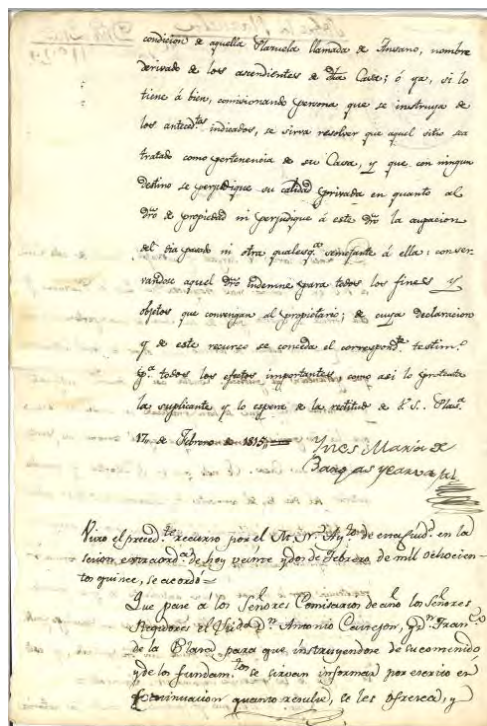 condicion de aquella Plazuela llamada de Ansano, nombre
derivado de los ascendientes de dha Casa; ó ya, si lo
tiene á bien, comisionando persona que se instruya de
los anteced.tes indicados, se sirva resolver que aquel sitio sea
tratado como pertenencia de su Casa, y que con ningun
destino se perjudique su calidad privada en quanto al
dro de propiedad ni perjudique á este dro la ocupacion
del dia puede ni otra qualesq.a semejante á ella: conser-
vandose aquel dro indemne para todos los fines y
objetos que convengan al propietario; de cuya declaracion
y de este recurso se conceda el correspond.te testim.o
p.a todos los efectos importantes, como asi lo protexta
la suplicante y lo espera de la rectitud de V.S. Plas.a
17 de Febrero de 1815
Ynes Maria de
Bargas y Carvajal
Visto el preced.te recurso por el M. N. Ay.to de esta ciud. en la
sesion extraord.a de hoy veinte y dos de Febrero de mil ochocien-
tos quince, se acordó=
Que pase a los Señores Comisarios de los Señores
Regidores D.n Antonio Carrejon, y D.n Fran.co
de la Blanca para que instruyendose de su comenido
y de los fundam.tos se sirvan informar por escrito en
continuacion quanto resulte, se les ofrezca, y